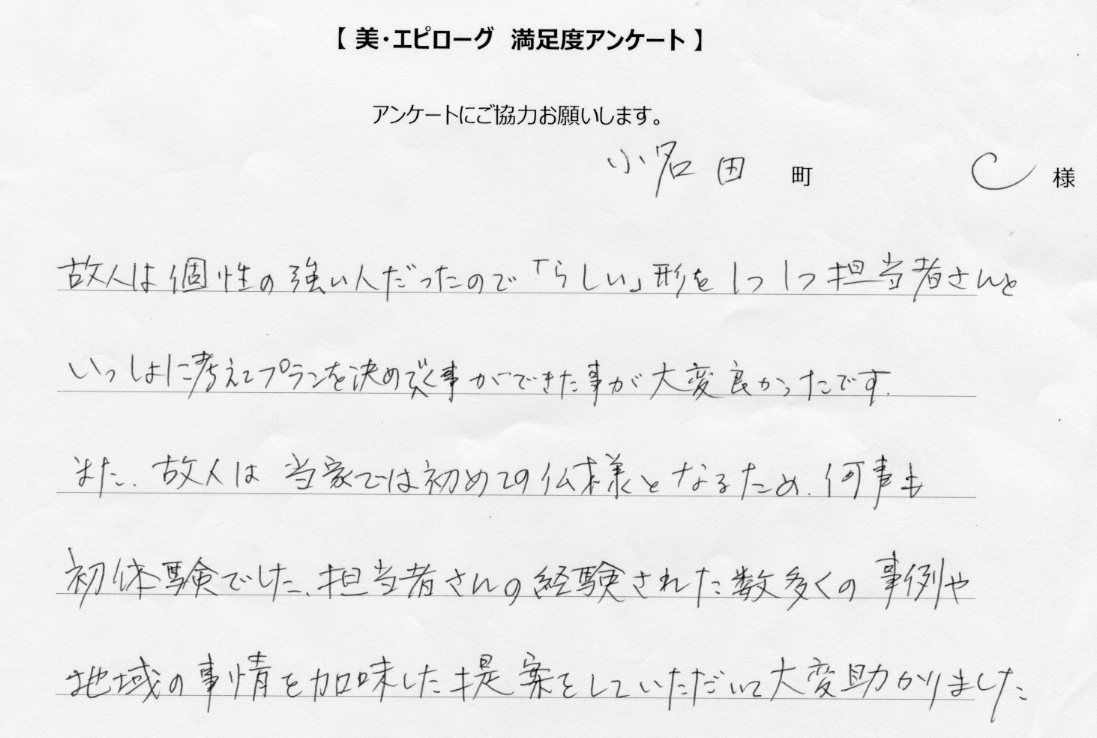 【 美・エピローグ 満足度アンケート 】
アンケートにご協力お願いします。
小名田 町 C 様
故人は個性の強い人だったので「らしい」形を1つ1つ担当者さんと
いっしょに考えてプランを決めでく事ができた事が大変良かったです。
また、故人は当家では初めての仏様となるため、何事も
初体験でした、担当者さんの経験された数多くの事例や
地域の事情を加味した提案をしていただいて大変助かりました